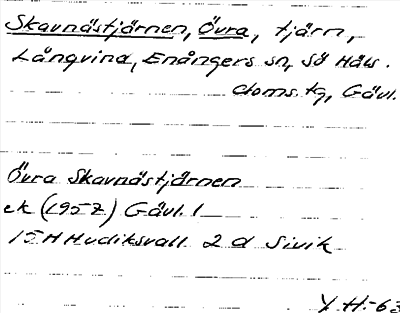 Skavnästjärnen, Övra, tjärn,
Långvind, Enångers sn, Sö Häls.
doms.tg, Gävl.
Övra Skavnästjärnen
ek (1957) Gävl. l
15H Hudiksvall 2 d Sivik
Y. H.-63